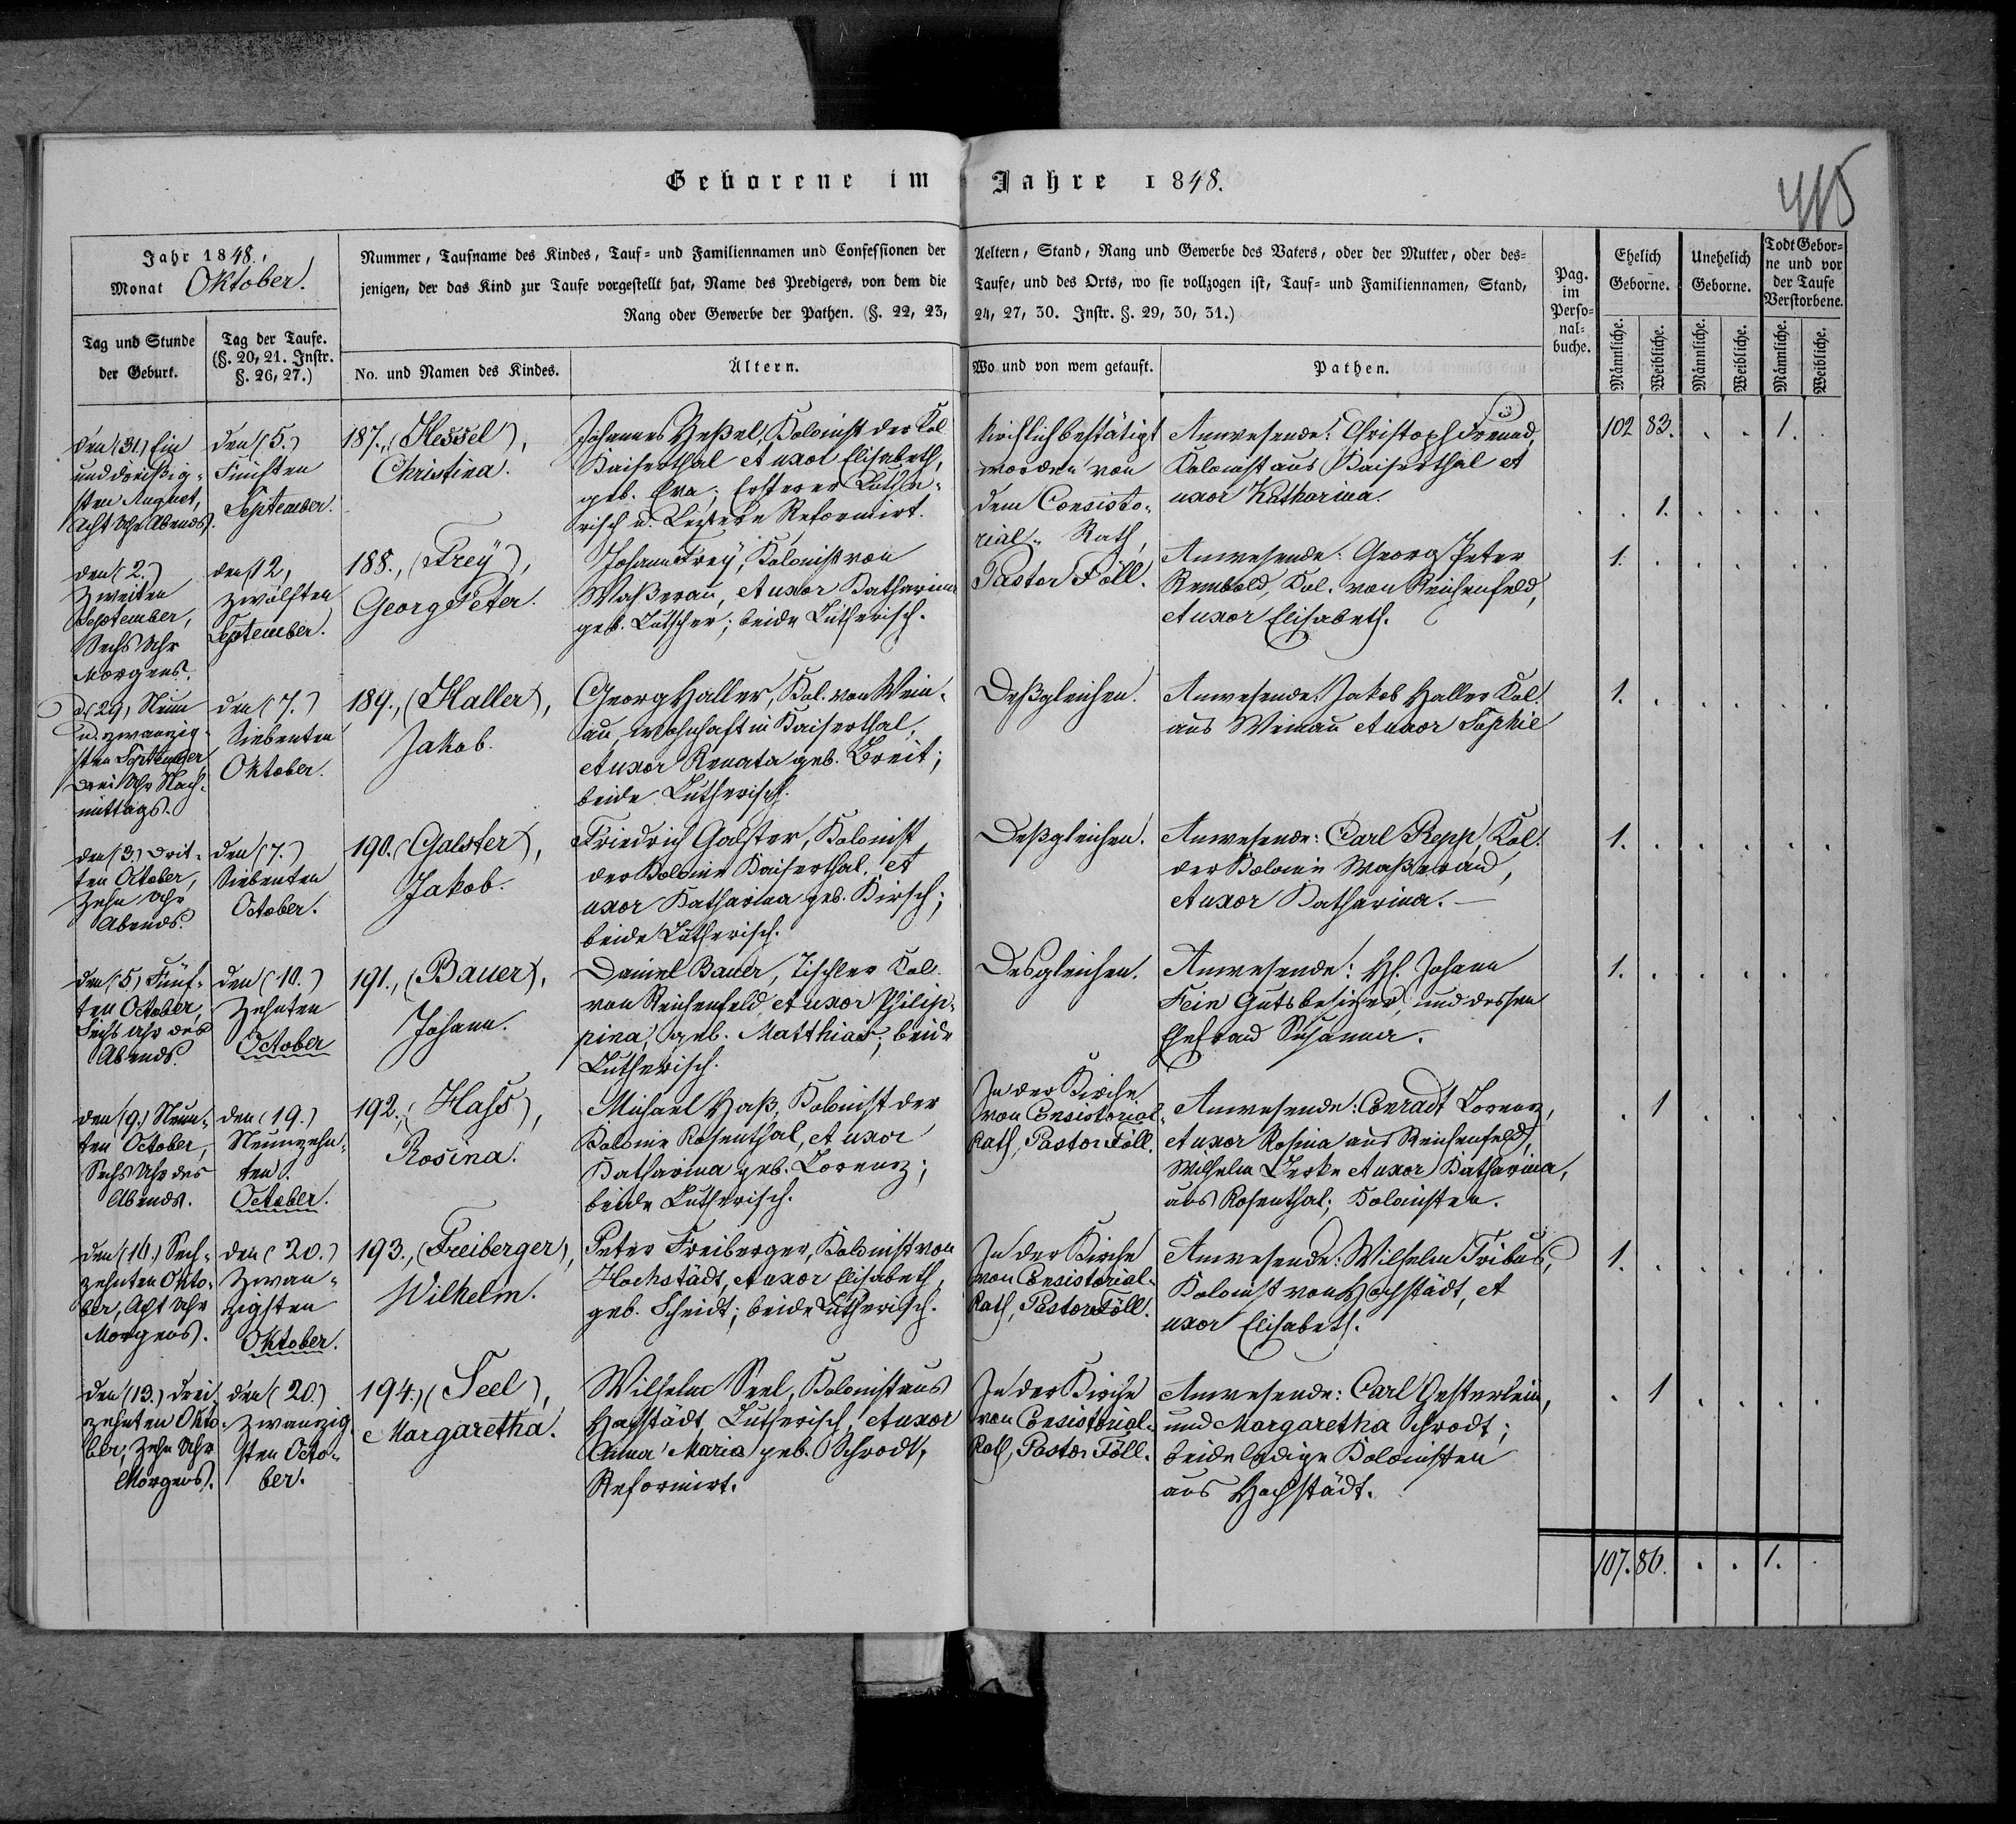 Geborene im Jahre 1848.
415
Jahr 1848.,
Monat Oktober.
Tag und Stunde
der Geburt.
Tag der Taufe.
(§. 20, 21. Instr.
§. 26, 27.)
Nummer, Taufname des Kindes, Tauf- und Familiennamen und Confessionen der Aeltern, Stand, Rang und Gewerbe des Vaters, oder der Mutter, oder des-
jenigen, der das Kind zur Taufe vorgestellt hat, Name des Predigers, von dem die Taufe, und des Orts, wo sie vollzogen ist, Tauf- und Familiennamen, Stand,
Rang oder Gewerbe der Pathen. (§. 22, 23, 24, 27, 30. Instr. §. 29, 30, 31.)
No. und Namen des Kindes.
Ältern.
Wo und von wem getauft.
Pathen.
Pag.
im
Perso-
nal-
buche.
Ehelich
Geborne.
Unehelich
Geborne.
Todt Gebor-
ne und vor
der Taufe
Verstorbene.
Männliche.
Weibliche.
Männliche.
Weibliche.
Männliche.
Weibliche.
102 83. . . 1. .
den (31.) Ein
und dreißig-
sten August,
Acht Uhr Abends.
den (5.)
Fünften
September.
187., (Hessel),
Christina.
Johannes Heßel, Kolonist der Kol.
Kaiserthal et uxor Elisabeth,
geb. Eva; Ersterer Luthe-
risch u. Leztere Reformirt.
Kirchlich bestätigt
worden von
dem Consisto-
rial- Rath,
Pastor Föll.
Anwesende: Christoph Freund,
Kolonist aus Kaiserthal et
uxor Katharina.
. 1. . . . .
den (2.)
Zweiten
September,
Sechs Uhr
Morgens.
den 12,
zwölften
September.
188., (Frey),
Georg Peter.
Johann Frey, Kolonist von
Waßerau, et uxor Katharina
geb. Lutscher; beide Lutherisch.
Anwesende: Georg Peter
Rembold, Kol. von Reichenfeld,
et uxor Elisabeth.
1. . . . . .
d. 29, Neun
u. zwanzig-
sten September
Drei Uhr Nach-
mittags.
den (7.)
Siebenten
Oktober.
189., (Haller),
Jakob.
Georg Haller, Kol. von Wein-
au, wohnhaft in Kaiserthal,
et uxor Renata geb. Breit;
beide Lutherisch.
Deßgleichen.
Anwesende: Jakob Haller Kol.
aus Weinau et uxor Sophie
1. . . . . .
den (3.) drit-
ten October,
Zehn Uhr
Abends.
den (7.)
Siebenten
October.
190. (Galster),
Jakob.
Friedrich Galster, Kolonist
der Kolonie Kaiserthal, et
uxor Katharina geb. Kirsch;
beide Lutherisch.
Deßgleichen.
Anwesende: Carl Repp, Kol.
der Kolonie Waßerau,
et uxor Katharina. —
1. . . . . .
den (5) Fünf-
ten October,
Sechs Uhr des
Abends.
den (10.)
Zehnten
October
191., (Bauer),
Johann.
Daniel Bauer, Tischler Kol.
von Reichenfeld, et uxor Philip-
pina, geb. Matthias; beide
Lutherisch.
Desgleichen.
Anwesende: H. Johann
Fein Gutsbesizer, und dessen
Ehefrau Susanna.
1. . . . . .
den (9.) Neun-
ten October,
Sechs Uhr des
Abends.
den (19.)
Neunzehn-
ten
October.
192., (Hass),
Rosina.
Michael Haß, Kolonist der
Kolonie Rosenthal, et uxor
Katharina geb. Lorenz;
beide Lutherisch.
In der Kirche
von Consistorial-
Rath, Pastor Föll.
Anwesende: Conradt Lorenz,
et uxor Rosina aus Reichenfeld,
Wilhelm Lerke et uxor Katharina,
aus Rosenthal; Kolonisten.
. 1 . . . .
den (16.) Sech-
zehnten Okto-
ber, Acht Uhr
Morgens.
den (20.)
Zwan-
zigsten
Oktober.
193., (Freiberger),
Wilhelm.
Peter Freiberger, Kolonist von
Hochstädt, et uxor Elisabeth,
geb. Scheidt; beide Lutherisch.
In der Kirche
von Consistorial-
Rath, Pastor Föll.
Anwesende: Wilhelm Tribus,
Kolonist von Hochstädt, et
uxor Elisabeth.
1. . . . . .
den (13.) Drei
zehnten Okto-
ber, Zehn Uhr
Morgens.
den (20.)
zwanzig-
sten Octo-
ber.
194., (Seel),
Margaretha.
Wilhelm Seel, Kolonist aus
Hochstädt, Lutherisch, et uxor
Anna Maria geb. Schrodt,
Reformirt.
In der Kirche
von Consistorial-
Rath, Pastor Föll.
Anwesende: Carl Oesterlein,
und Margaretha Schrodt;
beide ledige Kolonisten
aus Hochstädt.
. 1 . . . .
107. 86. . . 1. .